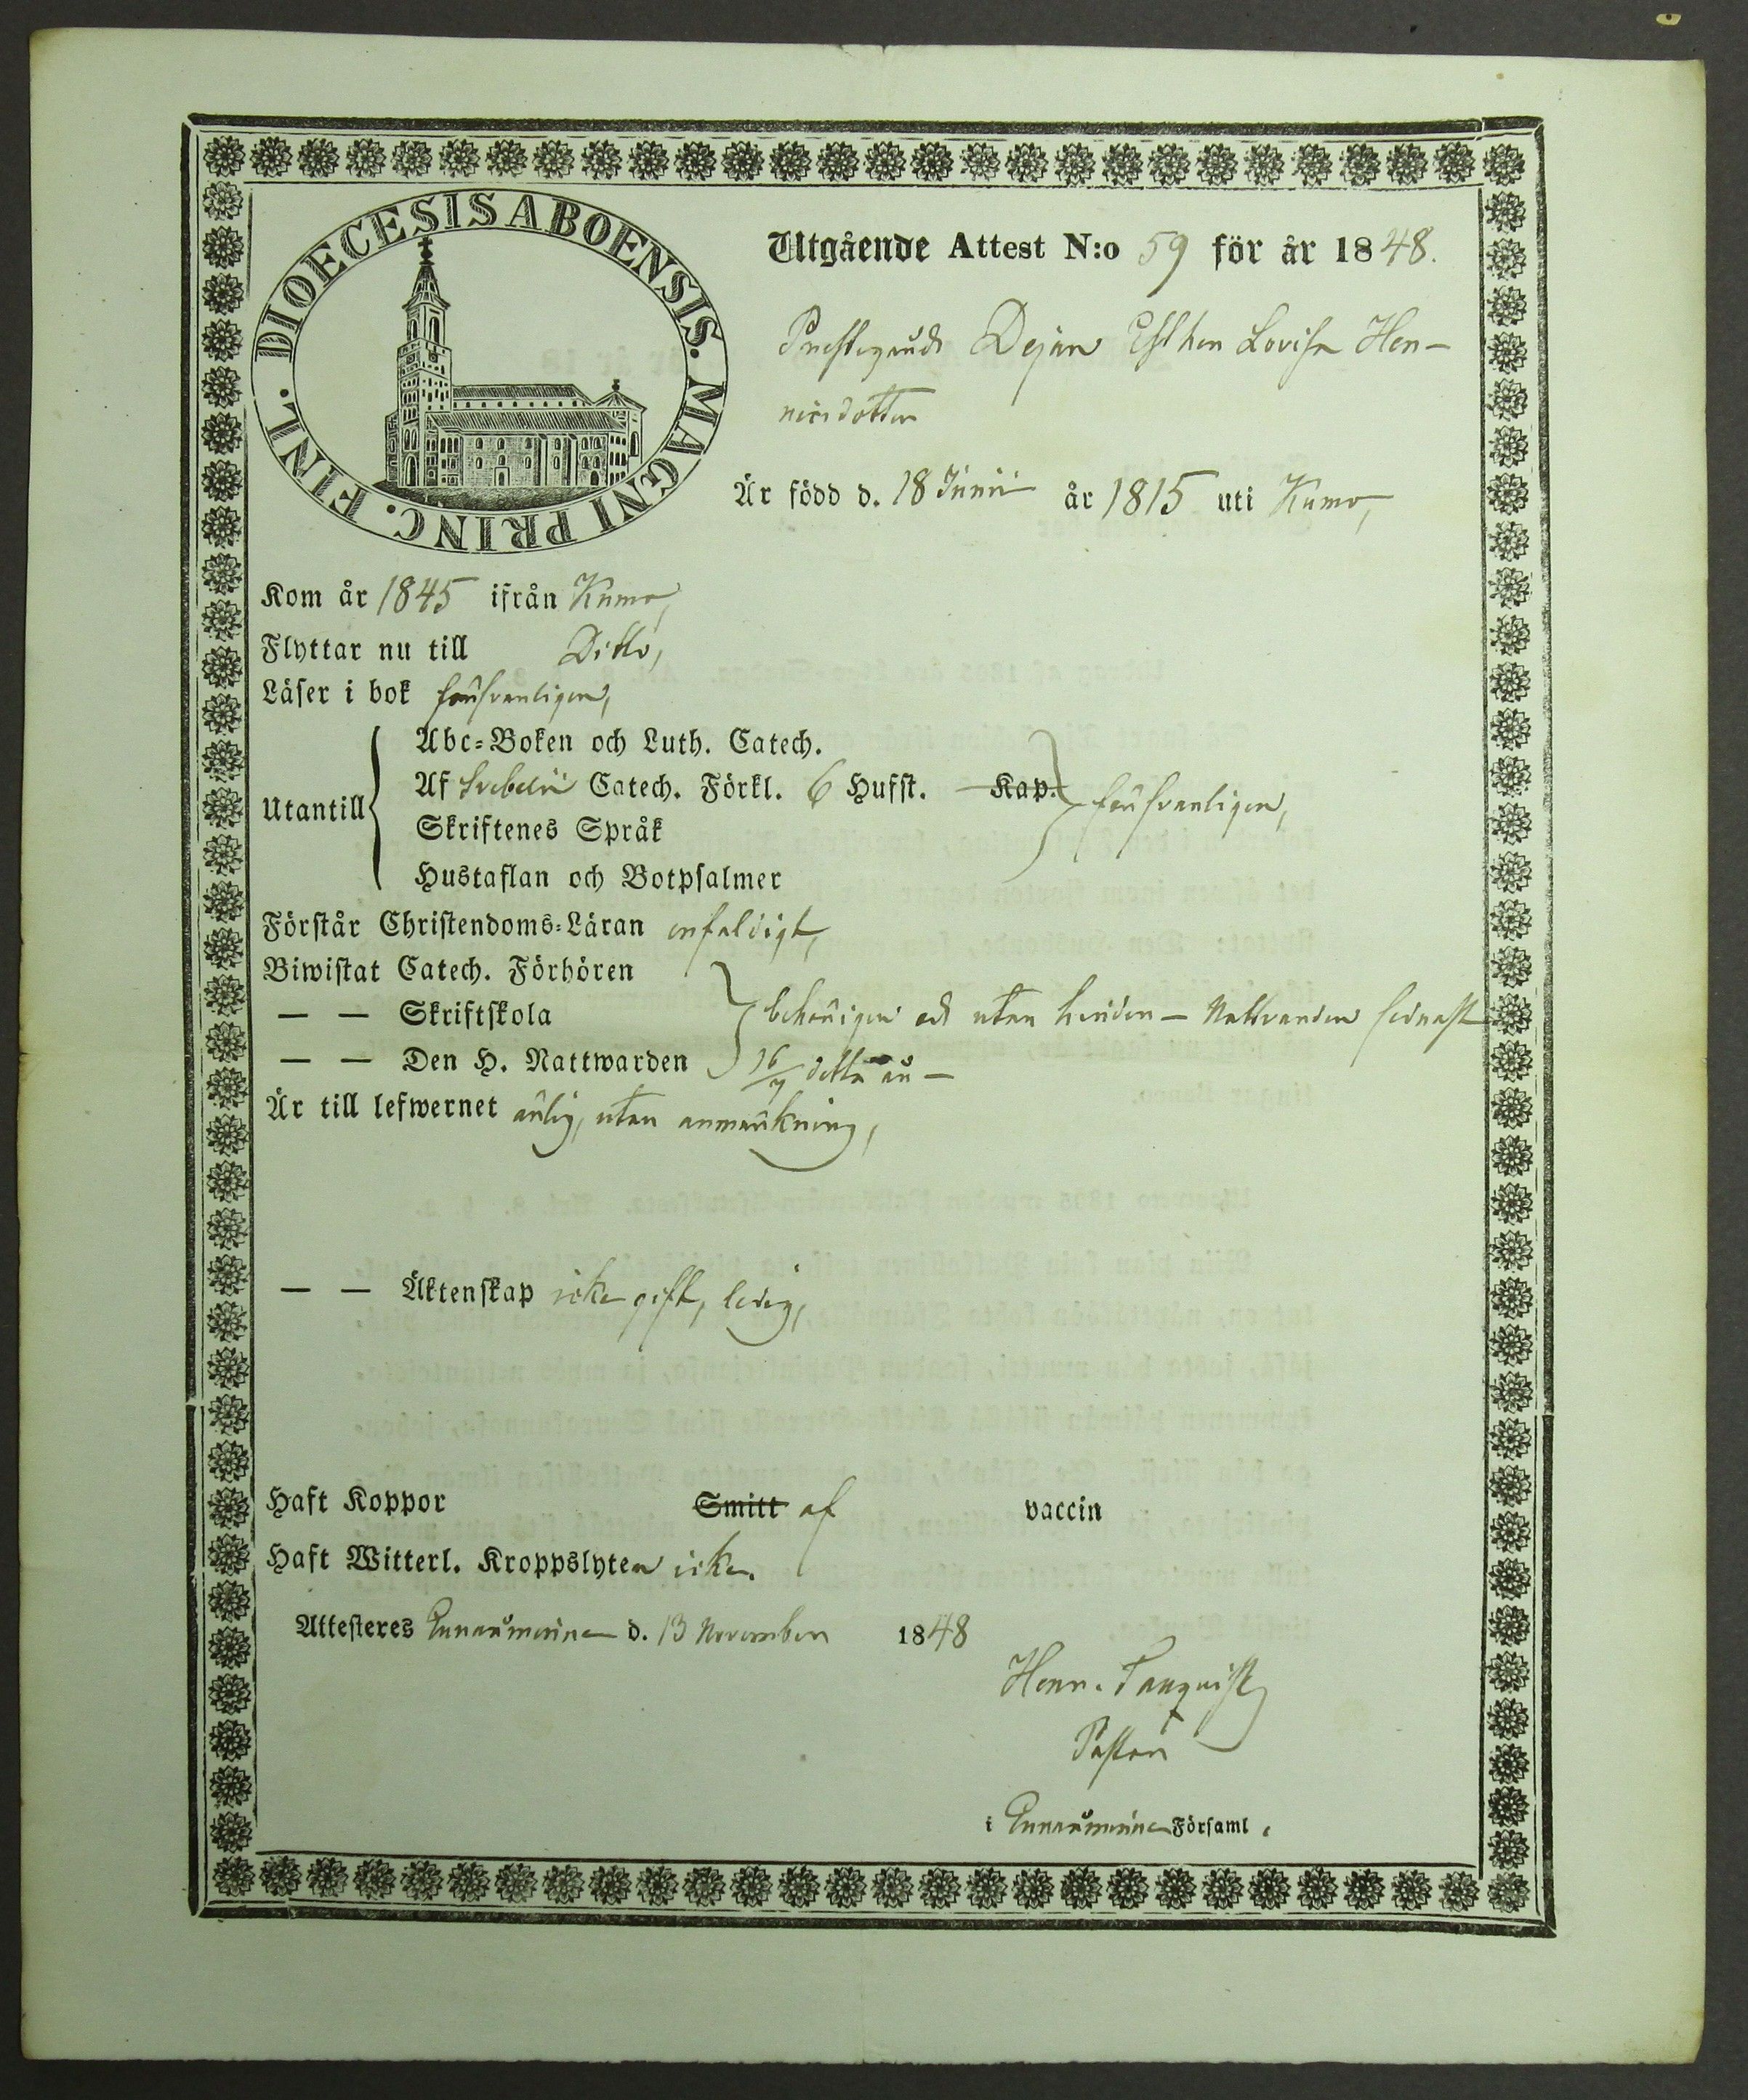 DIOECESIS ABOENSIS. MAGNI PRINC. FINL.
Utgående Attest N:o 59 för år 1848.
Prestegårds Dejan Esther Lovisa Hen-
ricsdotter
Är född d. 18 Junii år 1815 uti Kumo,
Kom år 1845 ifrån Kumo,
Flyttar nu till Ditto,
Läser i bok försvarligen,
Utantill
Abc-Boken och Luth. Catech.
Af Svebelii Catech. Förkl. 6 Hufst. Kap. försvarligen,
Skriftenes Språk
Hustaflan och Botpsalmer
Förstår Christendoms-Läran enfaldigt,
Biwistat Catech. Förhören
— — Skriftskola behörigen och utan hinder - Nattvarden sednast
— — Den H. Nattwarden 16/7 detta år -
Är till lefwernet ärlig, utan anmärkning,
— — Äktenskap icke gift, ledig,
Haft Koppor Smitt af vaccin
Haft Witterl. Kroppslyten icke.
Attesteres d. 13 November 1848
Henr.
Pastor
i Församl.